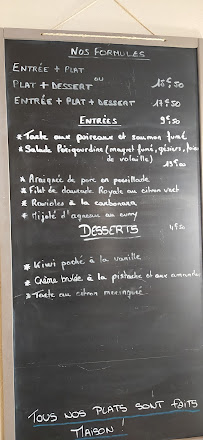 NOS FORMULES
ENTRÉE + PLAT
ou
PLAT + DESSERT 15€,50
ENTRÉE + PLAT + DESSERT 17€50
ENTRÉES 9€,50
* Tarte aux poireaux et saumon fumé
* Salade Périgourdine (magret fumé, gésiers, foies
de volaille) 13€00
* Araignée de porc en persillade
* Filet de daurade Royale au citron vert
* Ravioles à la carbonara
* Mijoté d'agneau au curry
DESSERTS 4€50
* Kiwi poché à la vanille
* Crème brûlée à la pistache et aux amandes
* Tarte au citron meringuée
TOUS NOS PLATS SONT FAITS
MAISON !